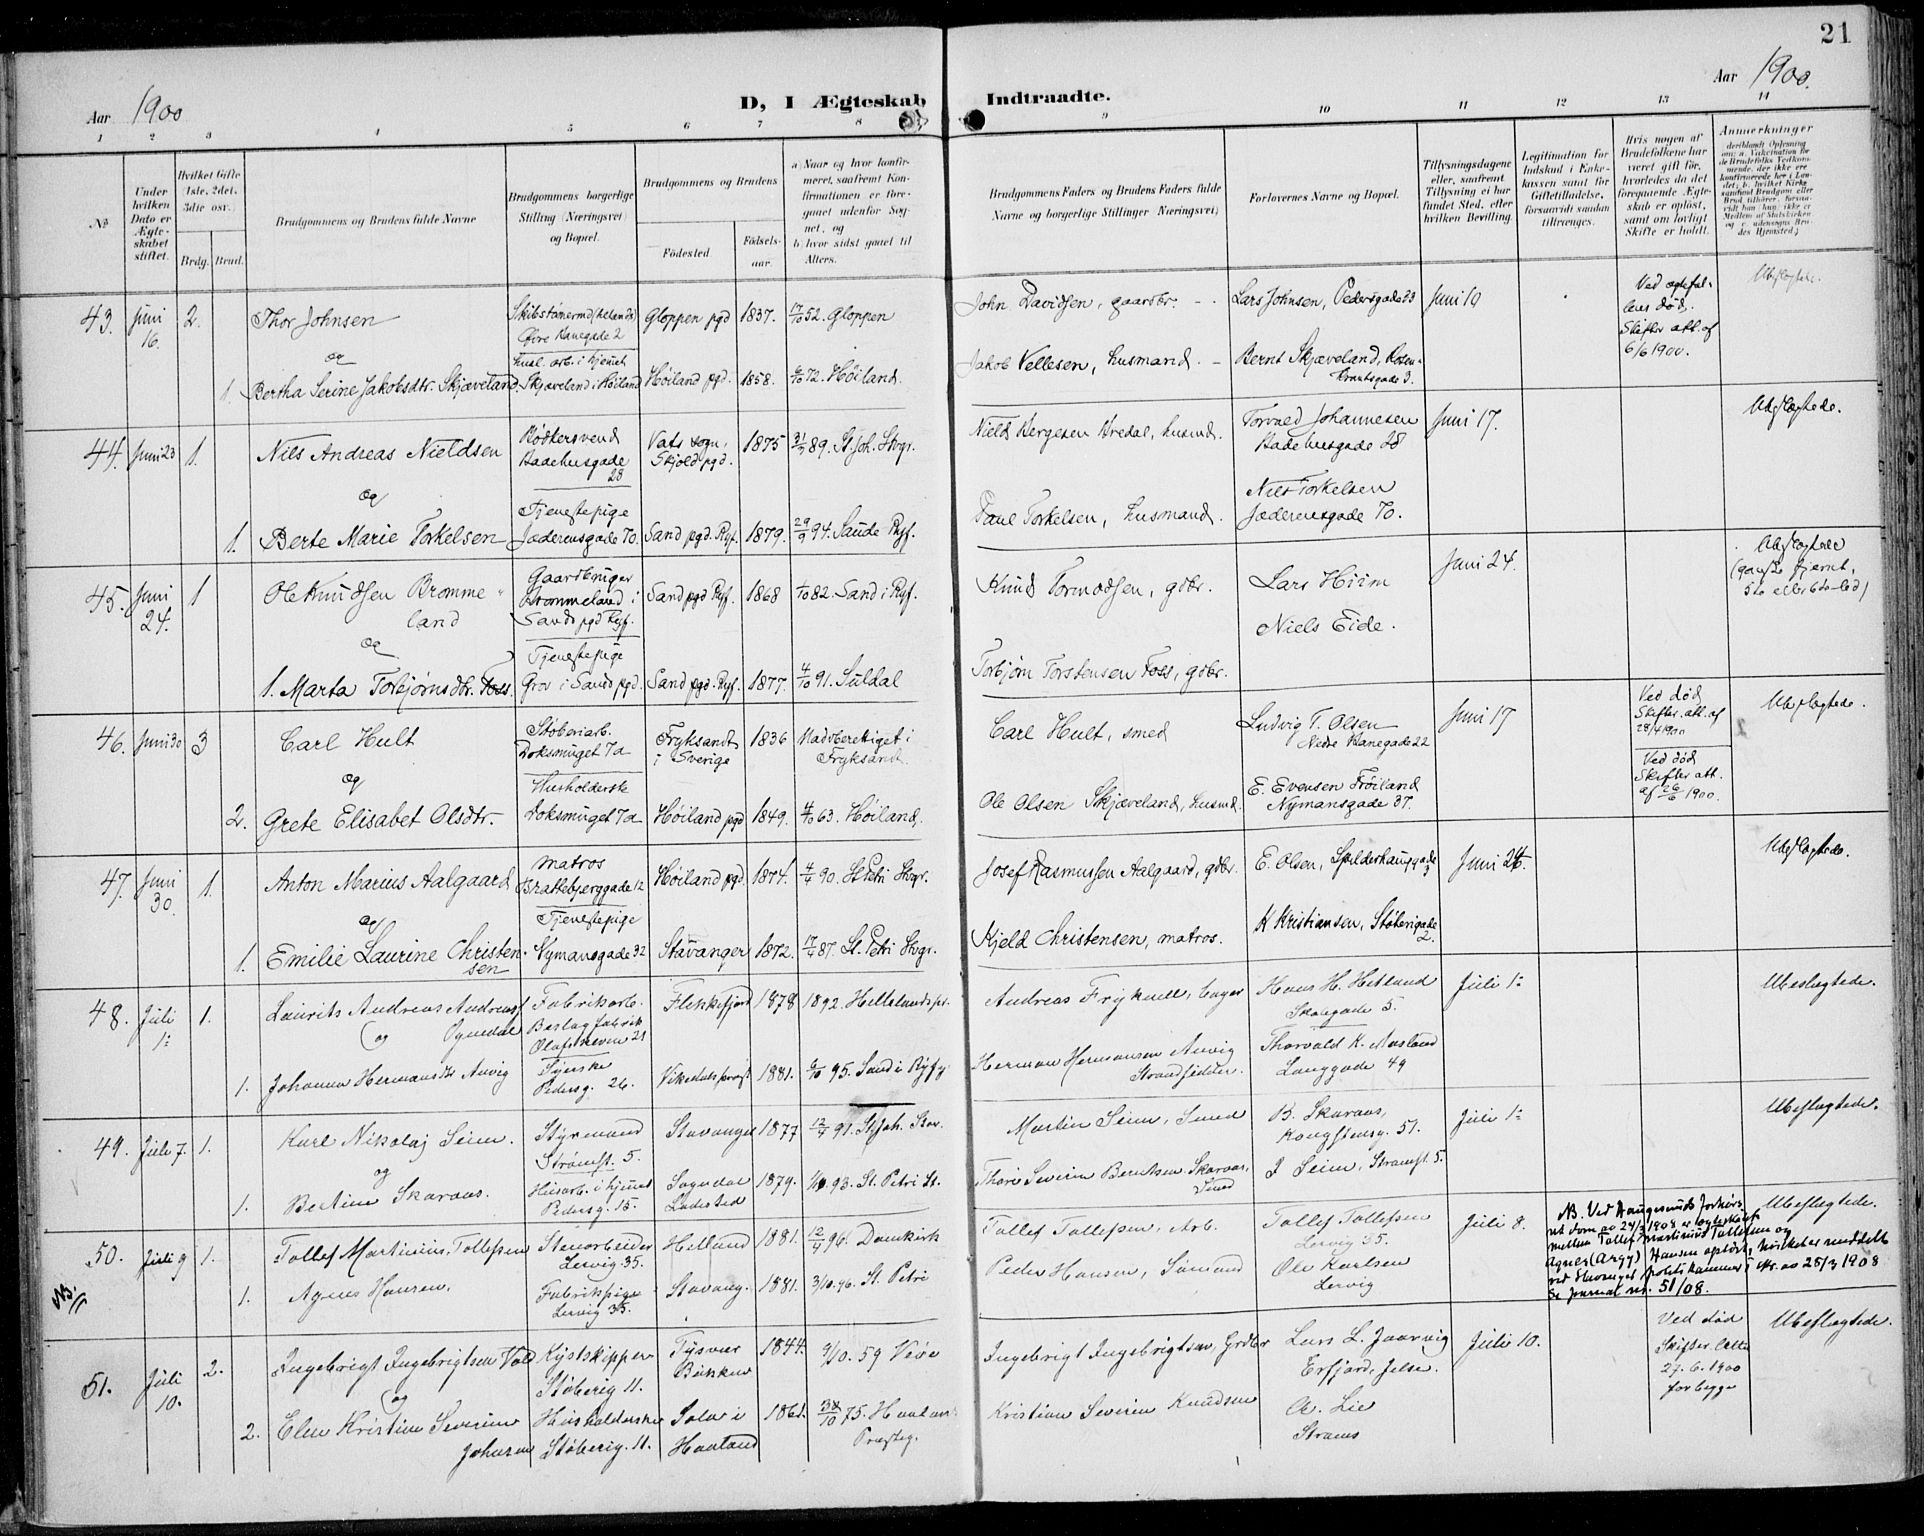 21
Aar 1900
D, I Ægteskab Indtraadte.
Aar 1900.
1 2 3 4 5 6 7 8 9 10 11 12 13 14
No
Under hvilken Dato er Ægteskabet stiftet.
Hvilket Gifte (1ste, 2det, 3die osv.)
Brdg. Brud.
Brudgommens og Brudens fulde Navne
Brudgommens borgerlige Stilling (Næringsvei) og Bopæl.
Brudgommens og Brudens
Fødested
Fødselsaar.
a) Naar og hvor konfirmeret, saafremt Konfirmationen er foregaaet udenfor Sognet, og
b) hvor sidst gaaet til Alters.
Brudgommens Faders og Brudens Faders fulde Navne og borgerlige Stillinger (Næringsvei)
Forlovernes Navne og Bopæl.
Tillysningsdagene eller, saafremt Tillysning ei har fundet Sted, efter hvilken Bevilling.
Legitimation for Indskud i Enkekassen samt for Giftetilladelse, forsaavidt saadan tiltrænges.
Hvis nogen af Brudefolkene har været gift før, hvorledes da det foregaaende Ægteskab er opløst, samt om lovligt Skifte er holdt.
Anmerkninger
43. Juni 16. 2. Thor Johnsen
Skibstømermd (helands) Øvre Banegade 2
Gloppen pgd 1837. 17/10 52. Gloppen
John Davidsen, gaardbr. Lars Johnsen, Pedersgade 23 Juni 10
Ved ægtefællens død. Skifter. att. af 6/6 1900.
Ubeslægtede.
og
1. Bertha Serine Jakobsdtr. Skjæveland
husl. arb. i hjemet Skjæveland i Høiland
Høiland pgd. 1858. 6/10 72. Høiland.
Jakob Vellesen, husmand. Bernt Skjæveland, Rosenkrantsgade 3.
44. Juni 23 1. Nils Andreas Nieldsen
Bødkersvend Baadehusgade 28
Vats sogn, Skjold pgd. 1875 31/3 89. St. Joh. Stvgr.
Nield Bergesen Bredal, husmd. Torvald Johannesen Badehusgade 28 Juni 17.
Ubeslægtede.
og
1. Berte Marie Torkelsen
Tjenestepige Jæderensgade 70.
Sand pgd. Ryf. 1879. 29/9 94. Saude Ryf.
Paul Torkelsen, husmand. Nils Torkelsen Jæderensgade 70.
45. Juni 24. 1 Ole Knudsen Brommeland
Gaardbruger Brommeland i Sands pgd Ryf.
Sand pgd Ryf. 1868 1/10 82. Sand i Ryf.
Knud Tormodsen, gdbr. Lars Hiim Juni 24.
Ubeslægtede (ganske fjernt, 5te eller 6te led)
og
1. Marta Torbjørnsdtr. Foss.
Tjenestepige Grov i Sands pgd.
Sand pgd. Ryf. 1877. 4/10 91. Suldal
Torbjørn Torstensen Foss, gdbr. Niels Eide.
46. Juni 30 3 Carl Hult
Støberiarb. Doksmuget 7a
Fryksande i Sverige 1836 Nadverettiget i Fryksand.
Carl Hult, smed Ludvig T. Olsen Nedre Banegade 22 Juni 17
Ved død Skifter. att. af 28/4 1900
Ubeslægtede.
og
2. Grete Elisabet Olsdtr.
Husholderske Doksmuget 7a
Høiland pgd 1849. 4/10 63. Høiland.
Ole Olsen Skjæveland, husmd. E. Evensen Frøiland Nymansgade 37.
Ved død Skifter att. af 26/6 1900.
47. Juni 30. 1. Anton Marius Aalgaard
matros Brattebjerggade 12
Høiland pgd. 1874. 4/4 90. St. Petri Stvgr.
Josef Rasmussen Aalgaard, gdbr. E. Olsen, Spilderhauggade 3 Juni 24.
Ubeslægtede.
og
1. Emilie Laurine Christensen
Tjenestepige Nymansgade 32
Stavanger 1872. 17/4 87. St. Petri Stvgr.
Kjeld Christensen, matros. K Kristiansen, Støberigade 2.
48. Juli 1. 1. Laurits Andreas Andreass. Ognedal
Fabrikarb. Beslagfabrik Olafskleven 21
Flekkefjord 1878 1892. Hellelands pr.
Andreas Fryknell, bager Hans H. Hetland Skolegade 5. Juli 1.
Ubeslægtede.
og
1. Johanna Hermansdtr Anvig
Syerske Pedersg. 26.
Vikedals præst 1881. 6/10 95. Sand i Ryfy.
Herman Hermansen Anvig Strandsidder. Thorvald K. Aasland Langgade 49
49. Juli 7. 1. Karl Nikolaj Seim.
Styrmand Strømst. 5.
Stavanger 1877 12/4 91. St. Joh. Stav.
Martin Seim, Smed B. Skaraas, Kongstensg. 51. Juli 1.
Ubeslægtede.
og
1. Bertine Skaraas.
Husarb. i hjemet Pedersg. 15.
Sogndal Ladested 1879. 1/10 93. St. Petri St.
Thore Severin Berntsen Skaraas, Smed J Seim, Strømst. 5.
50. Juli 9 1. Tollef Martinius Tollefsen
Stenarbeider Lervig 35.
Hetland 1881. 12/4 96. Domkirk
Tollef Tollefsen, Arb. Tollef Tollefsen Lervig 35. Juli 8.
Ubeslægtede.
NB. Ved Haugesunds forhørsret dom av 24/2 1908 er ægteskabet mellem Tollef Martinius Tollefsen og Agnes (Angy) Hansen opløst, hvilket er meddelt ved Stavanger politikammer i skr. av 28/3 1908 Se journal nr. 51/08.
NB.
1. Agnes Hansen.
Fabrikpige Lervig 35.
Stavang. 1881. 3/10. 96. St. Petri
Peder Hansen, Sømand Ole Karlsen Lervig
51. Juli 10. 2. Ingebrigt Ingebrigtsen Vold
Kystskipper Støberig 11.
Tysvær Bokken 1844. 9/10. 59 Veve
Ingebrigt Ingebrigtsen, Grdbr Lars L. Jaarvig Erfjord, Jelse. Juli 10.
Ved død Skifter. Atte 27.6.1900 forbygge
Ubeslægtede.
og
2. Elen Kristine Severine Johnsen
Husholderske Støberig. 11.
Sola i Haaland 1861. 3/10 75. Haaland Præsteg.
Kristian Severin Knudsen A. Lie Strams